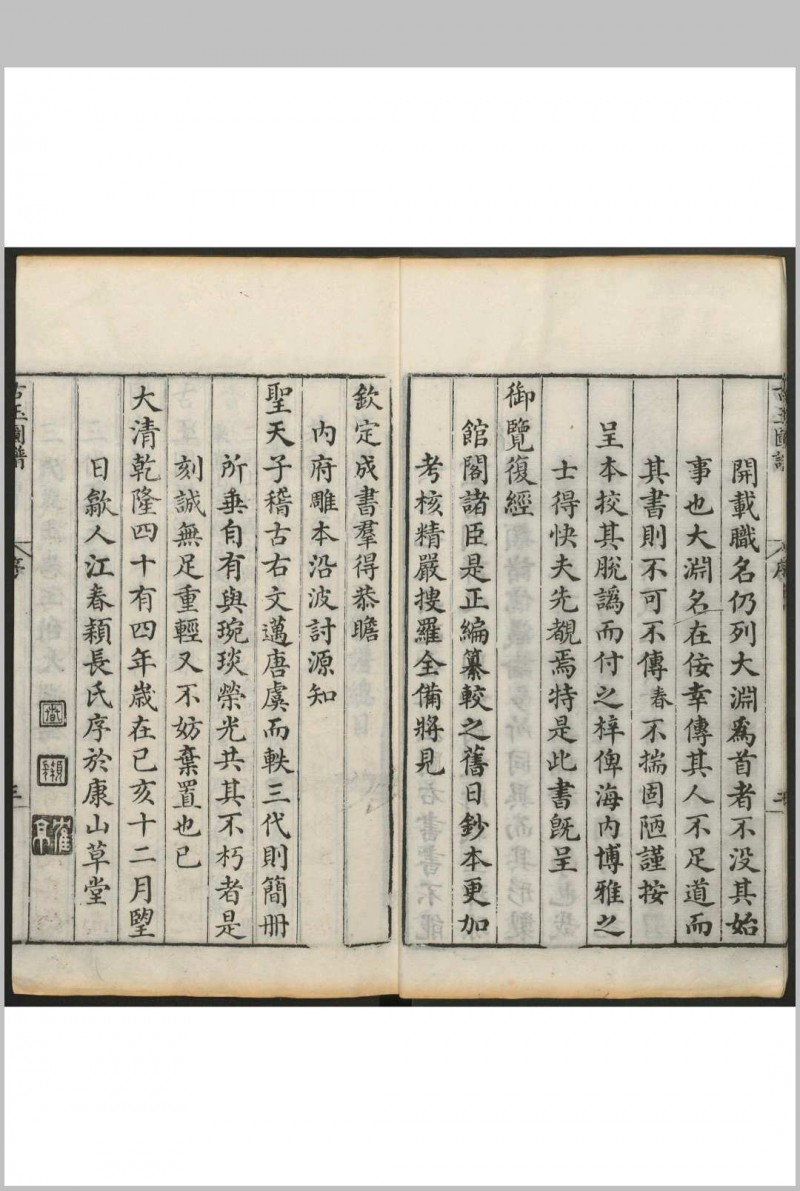 開載職名仍列大淵爲首者不没其始
事也大淵名在佞幸傳其人不足道而
其書則不可不傳春不揣固陋謹按
呈本挍其脫譌而付之梓俾海内博雅之
士得快夫先覩焉特是此書旣呈
御覽復經
館閣諸臣是正編纂較之舊日鈔本更加
考核精嚴搜羅全備將見
欽定成書羣得恭瞻
内府雕本沿波討源知
聖天子稽古右文邁唐虞而軼三代則簡册
所垂自有與琬琰榮光共其不朽者是
刻誠無足重輕又不妨棄置也已
大清乾隆四十有四年歲在己亥十二月朢
日歙人江春頴長氏序於康山草堂
古玉圖譜
序
三